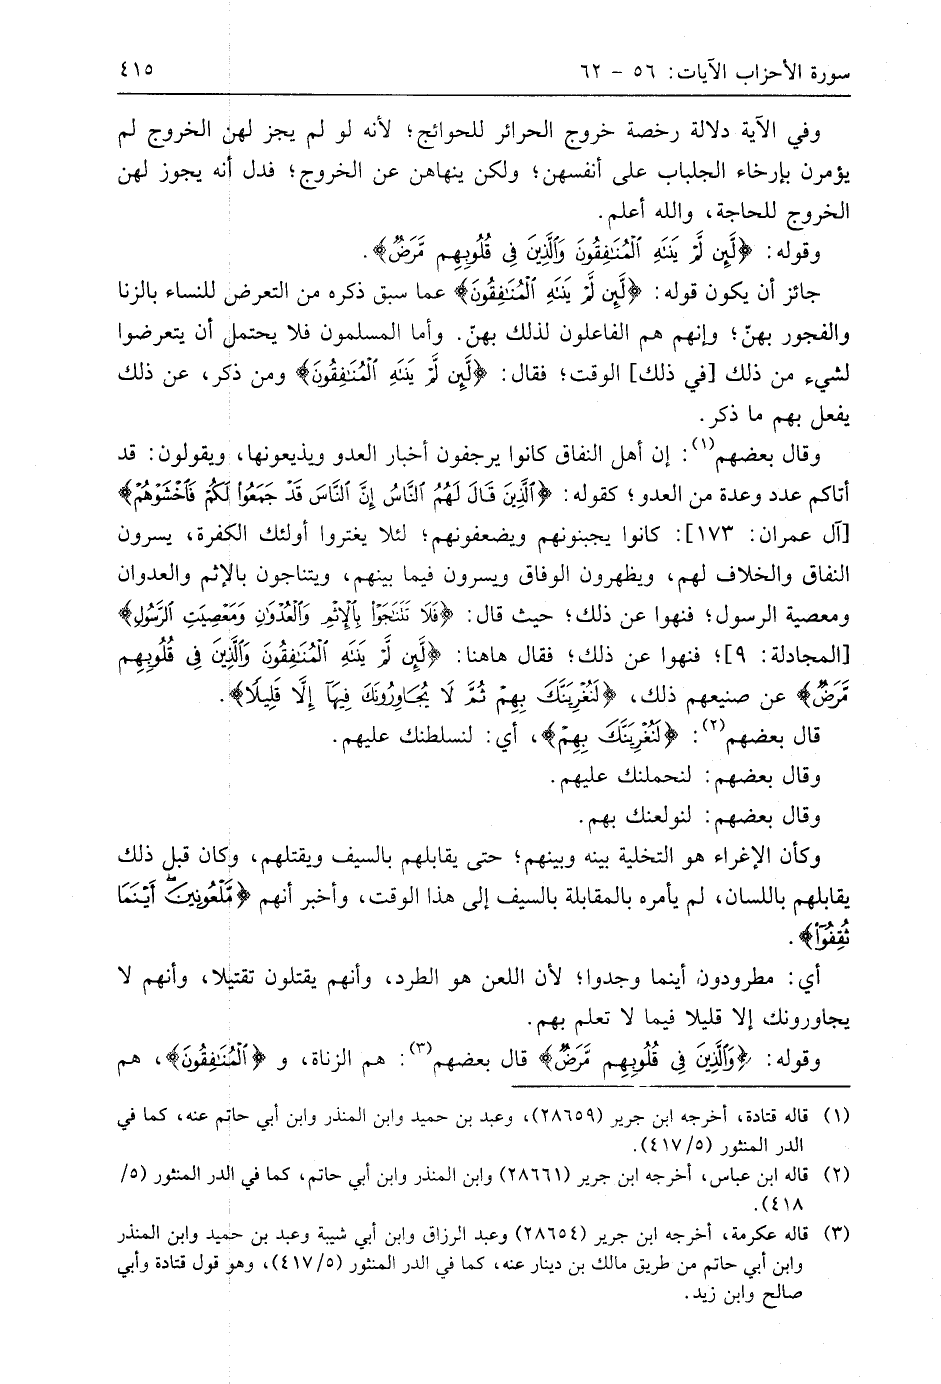 سورة الأحزاب الآيات: ٥٦ - ٦٢ ٤١٥
وفي الآية دلالة رخصة خروج الحرائر للحوائج؛ لأنه لو لم يجز لهن الخروج لم
يؤمرن بإرخاء الجلباب على أنفسهن؛ ولكن ينهاهن عن الخروج؛ فدل أنه يجوز لهن
الخروج للحاجة، والله أعلم.
وقوله: ﴿لَّئِن لَّمْ يَنتَهِ ٱلْمُنَٰفِقُونَ وَٱلَّذِينَ فِى قُلُوبِهِم مَّرَضٌ﴾.
جائز أن يكون قوله: ﴿لَّئِن لَّمْ يَنتَهِ ٱلْمُنَٰفِقُونَ﴾ عما سبق ذكره من التعرض للنساء بالزنا
والفجور بهنّ؛ وإنهم هم الفاعلون لذلك بهنّ. وأما المسلمون فلا يحتمل أن يتعرضوا
لشيء من ذلك [في ذلك] الوقت؛ فقال: ﴿لَّئِن لَّمْ يَنتَهِ ٱلْمُنَٰفِقُونَ﴾ ومن ذكر، عن ذلك
يفعل بهم ما ذكر.
وقال بعضهم(١): إن أهل النفاق كانوا يرجفون أخبار العدو ويذيعونها، ويقولون: قد
أتاكم عدد وعدة من العدو؛ كقوله: ﴿ٱلَّذِينَ قَالَ لَهُمُ ٱلنَّاسُ إِنَّ ٱلنَّاسَ قَدْ جَمَعُوا۟ لَكُمْ فَٱخْشَوْهُمْ﴾
[آل عمران: ١٧٣]: كانوا يجبنونهم ويضعفونهم؛ لئلا يغتروا أولئك الكفرة، يسرون
النفاق والخلاف لهم، ويظهرون الوفاق ويسرون فيما بينهم، ويتناجون بالإثم والعدوان
ومعصية الرسول؛ فنهوا عن ذلك؛ حيث قال: ﴿فَلَا تَتَنَٰجَوْا۟ بِٱلْإِثْمِ وَٱلْعُدْوَٰنِ وَمَعْصِيَتِ ٱلرَّسُولِ﴾
[المجادلة: ٩]؛ فنهوا عن ذلك؛ فقال هاهنا: ﴿لَّئِن لَّمْ يَنتَهِ ٱلْمُنَٰفِقُونَ وَٱلَّذِينَ فِى قُلُوبِهِم
مَّرَضٌ﴾ عن صنيعهم ذلك، ﴿لَنُغْرِيَنَّكَ بِهِمْ ثُمَّ لَا يُجَاوِرُونَكَ فِيهَآ إِلَّا قَلِيلًا﴾.
قال بعضهم(٢): ﴿لَنُغْرِيَنَّكَ بِهِمْ﴾، أي: لنسلطنك عليهم.
وقال بعضهم: لنحملنك عليهم.
وقال بعضهم: لنولعنك بهم.
وكأن الإغراء هو التخلية بينه وبينهم؛ حتى يقابلهم بالسيف ويقتلهم، وكان قبل ذلك
يقابلهم باللسان، لم يأمره بالمقابلة بالسيف إلى هذا الوقت، وأخبر أنهم ﴿مَّلْعُونِينَ ۖ أَيْنَمَا
ثُقِفُوٓا۟﴾.
أي: مطرودون أينما وجدوا؛ لأن اللعن هو الطرد، وأنهم يقتلون تقتيلا، وأنهم لا
يجاورونك إلا قليلا فيما لا تعلم بهم.
وقوله: ﴿وَٱلَّذِينَ فِى قُلُوبِهِم مَّرَضٌ﴾ قال بعضهم(٣): هم الزناة، و ﴿ٱلْمُنَٰفِقُونَ﴾، هم
(١) قاله قتادة، أخرجه ابن جرير (٢٨٦٥٩)، وعبد بن حميد وابن المنذر وابن أبي حاتم عنه، كما في
الدر المنثور (٤١٧/٥).
(٢) قاله ابن عباس، أخرجه ابن جرير (٢٨٦٦١) وابن المنذر وابن أبي حاتم، كما في الدر المنثور (٥/
٤١٨).
(٣) قاله عكرمة، أخرجه ابن جرير (٢٨٦٥٤) وعبد الرزاق وابن أبي شيبة وعبد بن حميد وابن المنذر
وابن أبي حاتم من طريق مالك بن دينار عنه، كما في الدر المنثور (٤١٧/٥)، وهو قول قتادة وأبي
صالح وابن زيد.